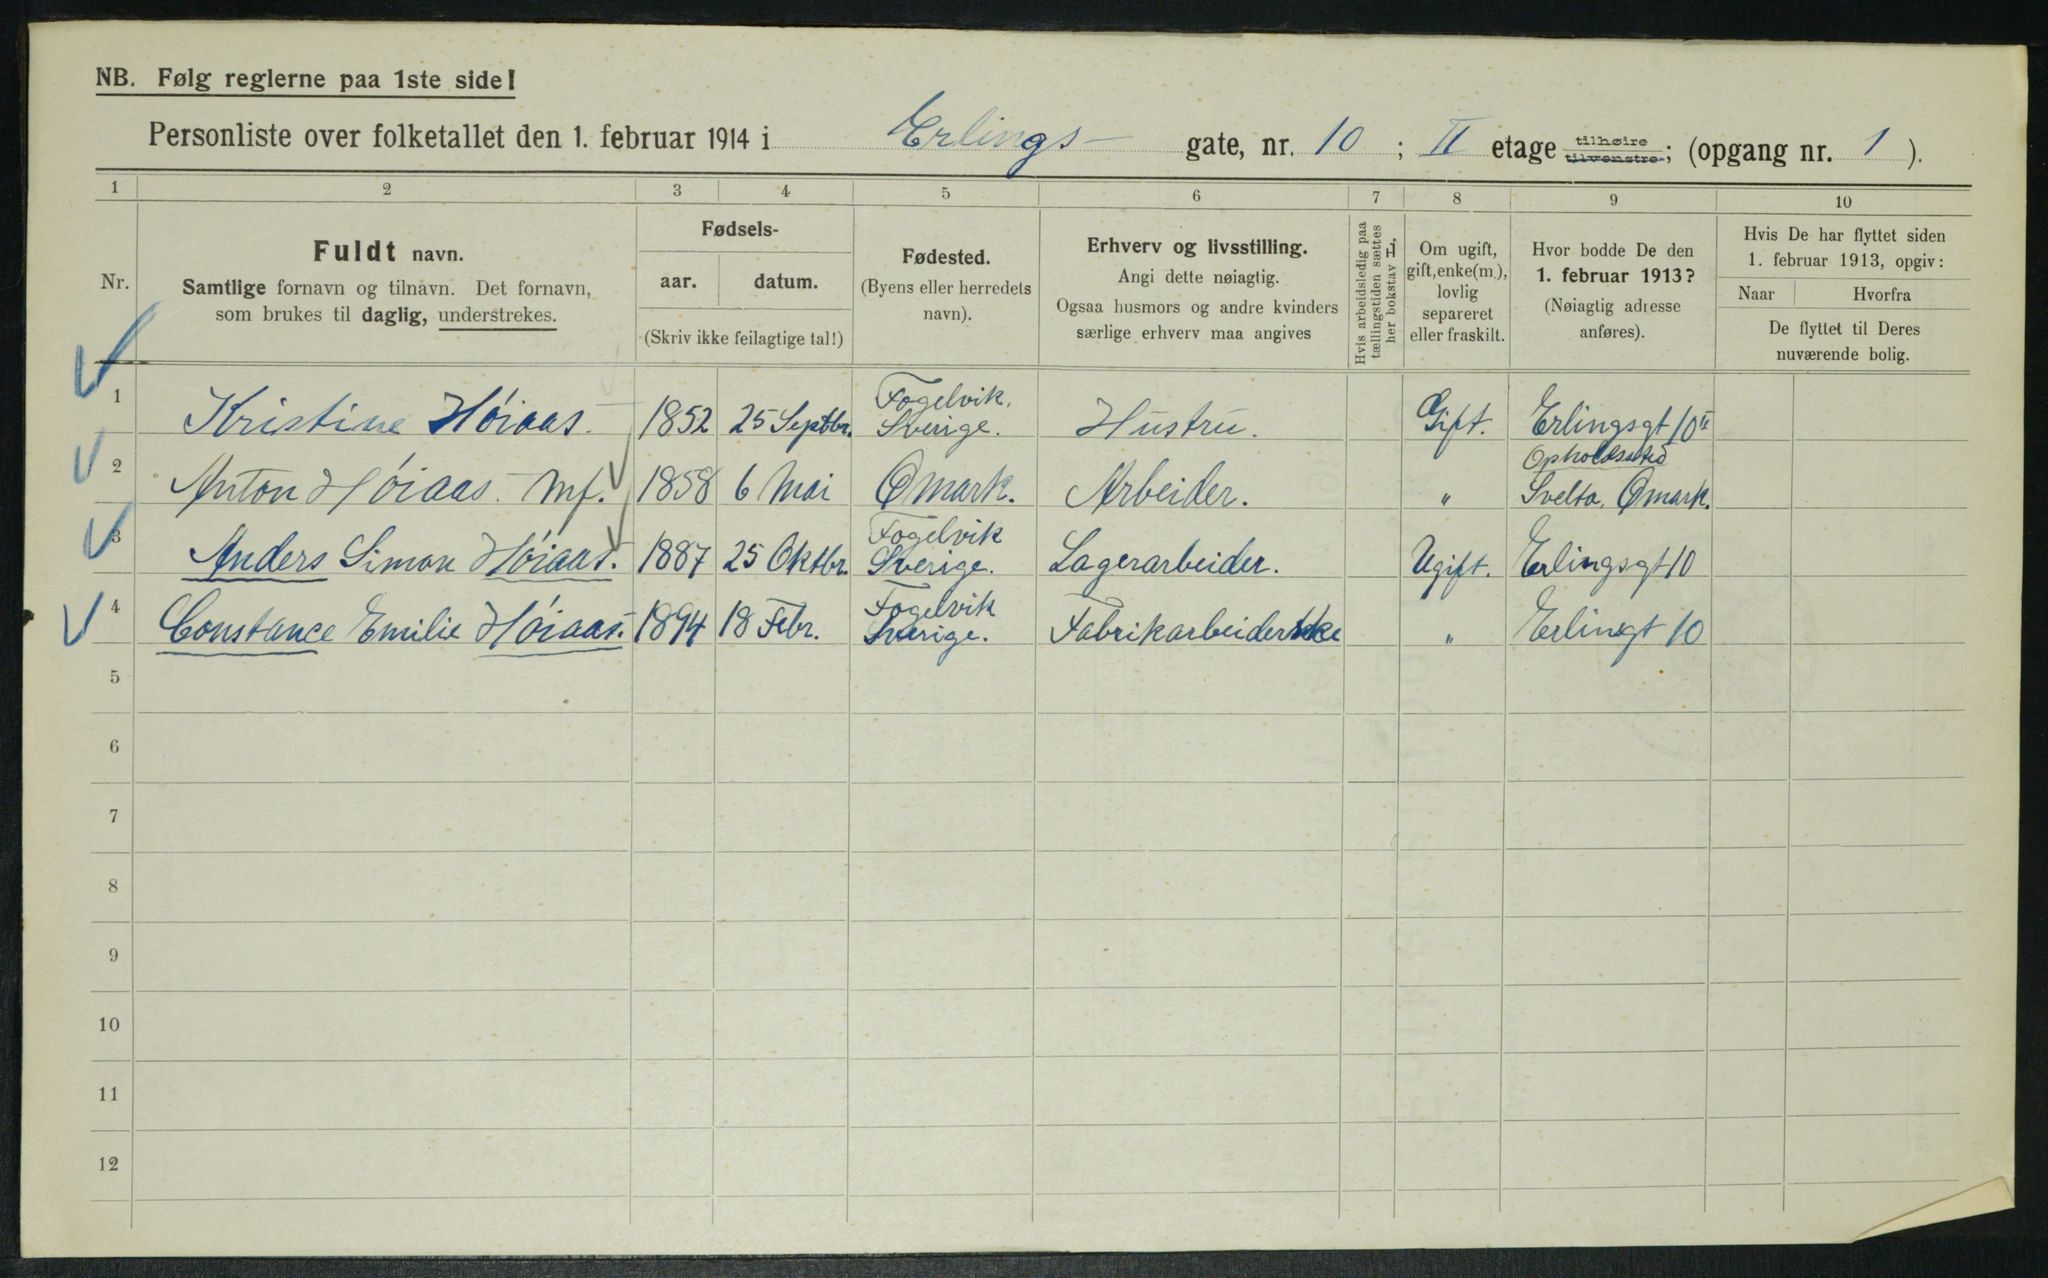 NB. Følg reglerne paa 1ste side!
Personliste over folketallet den 1. februar 1914 i Erlings- gate, nr. 10; II etage tilhøire tilvenstre; (opgang nr. 1).
1 2 3 4 5 6 7 8 9 10
Nr.
Fuldt navn.
Samtlige fornavn og tilnavn. Det fornavn,
som brukes til daglig, understrekes.
Fødsels-
aar. datum.
(Skriv ikke feilagtige tal!)
Fødested.
(Byens eller herredets
navn).
Erhverv og livsstilling.
Angi dette nøiagtig.
Ogsaa husmors og andre kvinders
særlige erhverv maa angives
Hvis arbeidsledig paa
tællingstiden sættes
her bokstav L.
Om ugift,
gift, enke(m.),
lovlig
separeret
eller fraskilt.
Hvor bodde De den
1. februar 1913?
(Nøiagtig adresse
anføres).
Hvis De har flyttet siden
1. februar 1913, opgiv:
Naar Hvorfra
De flyttet til Deres
nuværende bolig.
1 Kristine Hóiaas. 1852 25 Septbr. Fogelvik. Sverige. Hustru. Gift. Erlingsgt 10 II
2 Anton Hóiaas. Mf. 1858 6 Mai Ømark. Arbeider. " Opholdssted Svelta, Ømark.
3 Anders Simon Hóiaas. 1887 25 Oktbr. Fogelvik Sverige. Lagerarbeider. Ugift. Erlingsgt 10
4 Constance Emilie Hóiaas. 1894 18 Febr. Fogelvik Sverige. Fabrikarbeiderske " Erlinsgt 10
5
6
7
8
9
10
11
12